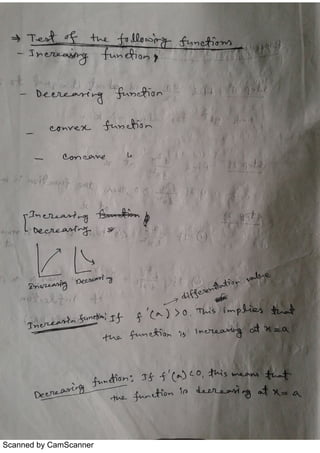 ⇒ Test of the following functions
- Increasing function,
- Decreasing function
- convex function
- Concave "
Increasing function
Decreasing "
Increasing Decreasing
→ differentiation value
Increasin function: If f'(a) > 0, This implies that
the function is increasing at x=a
Decreasing function: If f'(a) < 0, this means that
the function is decreasing at x = a
Scanned by CamScanner